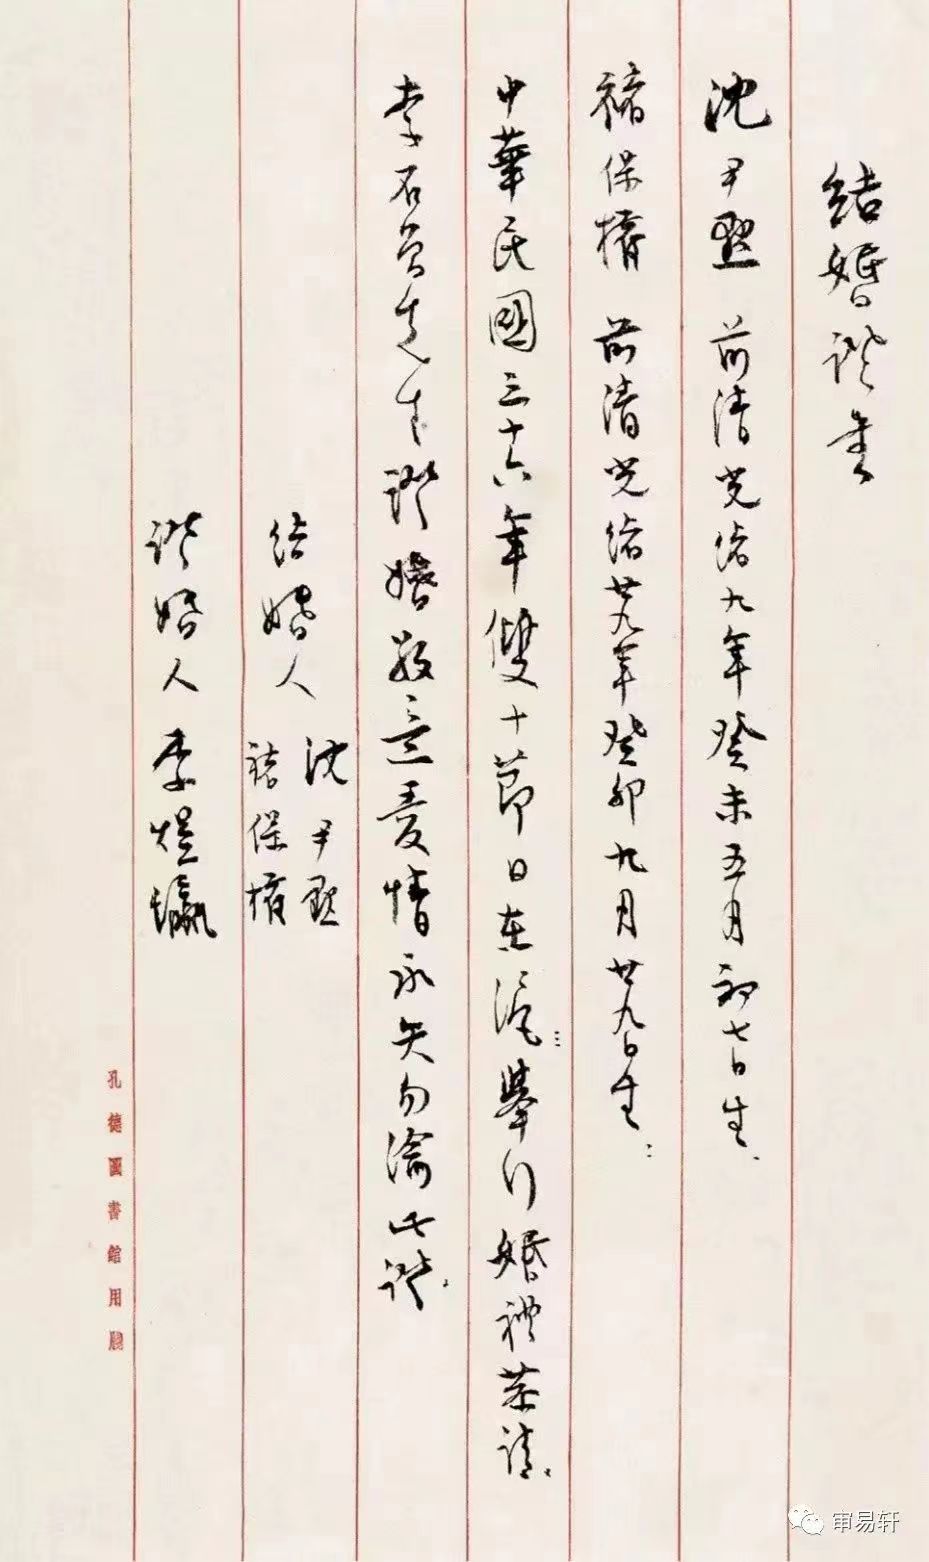 結婚證書
沈尹默 前清光緒九年癸未五月初七日生
褚保權 前清光緒廿九年癸卯九月廿九日生
中華民國三十六年雙十節日在滬舉行婚禮恭請
李石曾先生證婚意愛情永矢勿渝此證
結婚人 沈尹默
褚保權
證婚人 李煜瀛
孔德圖書館用牋
审易轩